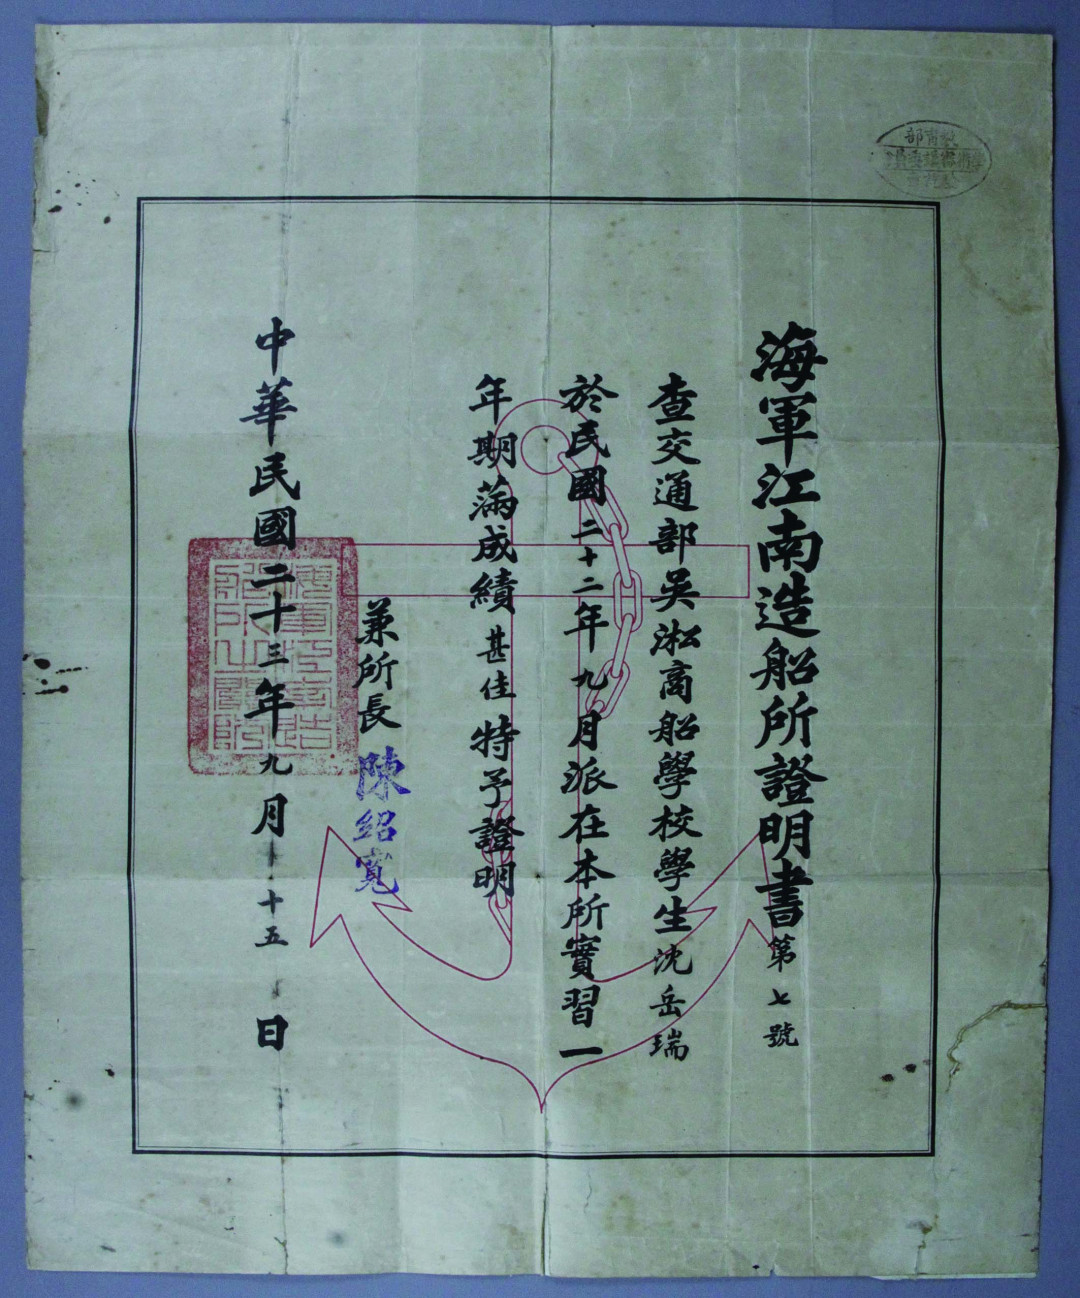 海軍江南造船所證明書第七號
查交通部吳淞商船學校學生沈岳瑞
於民國二十二年九月派在本所實習一
年期滿成績甚佳特予證明
兼所長陳紹寬
中華民國二十三年九月十五日
海軍江南造船所之關防
教育部